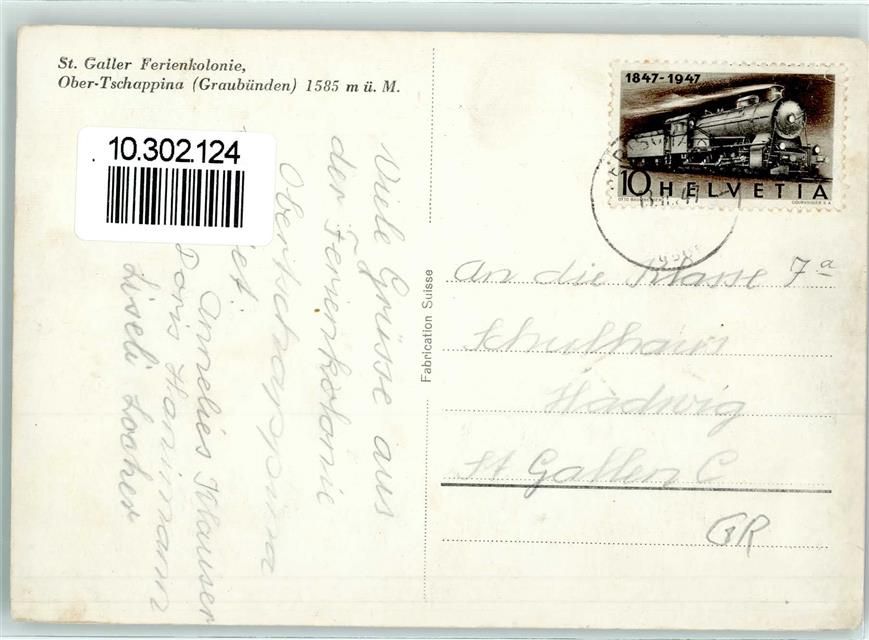 St. Galler Ferienkolonie,
Ober-Tschappina (Graubünden) 1585 m ü. M.
10.302.124
Viele Grüsse aus
der Ferienkolonie
Obertschappina
Annelies Klauser
Doris Hanimann
Liseli Locher
Fabrication Suisse
1847-1947
10 HELVETIA
COURVOISIER S.A.
An die Klasse 7a
Schulhaus
Hadwig
St Gallen C
GR